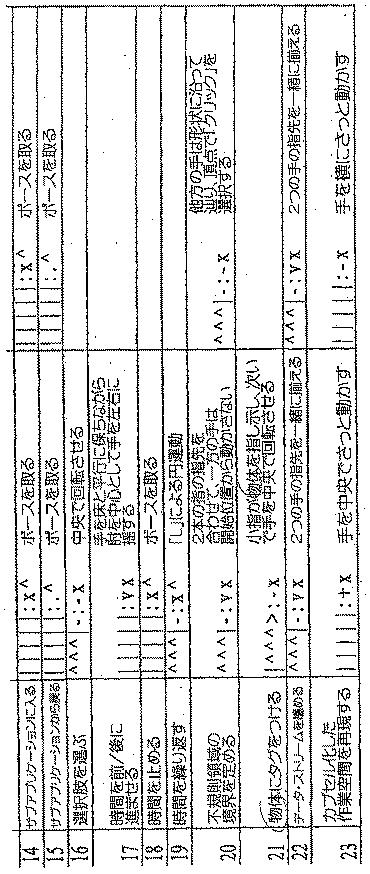 14 サブアプリケーションに入る |||||:x^ ポーズを取る |||||:x^ ポーズを取る
15 サブアプリケーションから戻る |||||:.^ ポーズを取る |||||:.^ ポーズを取る
16 選択肢を選ぶ ^^^|-:-x 中央で回転させる
17 時間を前/後に
進ませる |||||:vx 手を床と平行に保ちながら
肘を中心として手を左右に
揺する
18 時間を止める |||||:x^ ポーズを取る
19 時間を繰り返す ^^^|-:x^ 「L」による円運動
20 不規則領域の
境界を定める ^^^|-:vx 2本の指の指先を
合わせて、一方の手は
開始位置から動かさない ^^^|-:-x 他方の手は形状に沿って
辿り、頂点で「クリック」を
選択する
21 物体にタグをつける |^^^>:-x 小指が物体を指し示し、次い
で手を中央で回転させる
22 データ・ストリームを纏める ^^^|-:vx 2つの手の指先を一緒に揃える ^^^|-:vx 2つの手の指先を一緒に揃える
23 カプセル化した
作業空間を再現する |||||:+x 手を中央でさっと動かす |||||:-x 手を横にさっと動かす